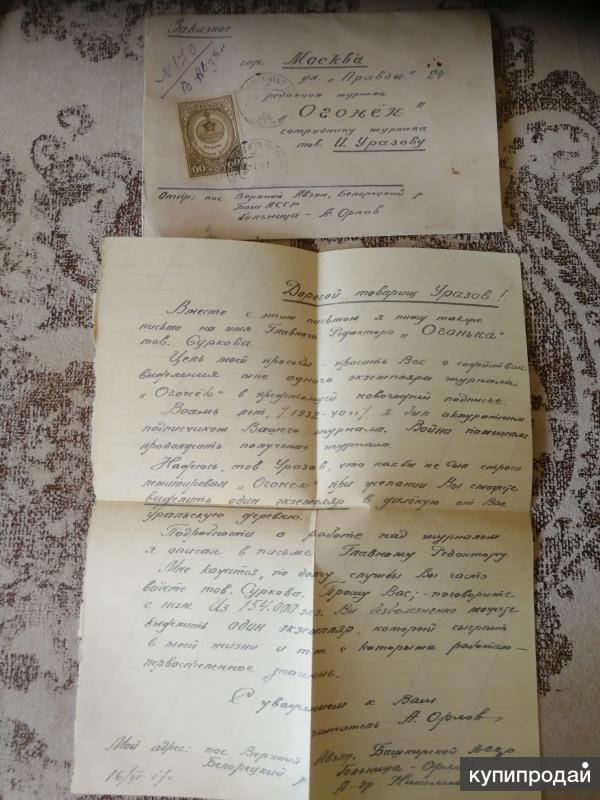 Заказное
N 170
В Авзян
гор. Москва
ул. „Правды" 24
редакция журнала
„Огонёк"
сотруднику журнала
тов. И. Уразову
60 коп
Отпр: пос. Верхний Авзян, Белорецкий р
Баш АССР
больница - А. Орлов
Дорогой товарищ Уразов!
Вместе с этим письмом я пишу также
письмо на имя Главного Редактора „Огонька"
тов. Суркова.
Цель моей просьбы - просить Вас о содействии
выделения мне одного экземпляра журнала
„Огонёк" в предстоящей новогодней подписке.
Восемь лет, я был аккуратным
подписчиком Вашего журнала. Война помешала
продолжать получение журнала.
Надеюсь, тов. Уразов, что как бы не был строго
лимитирован „Огонёк" при желании Вы сможете
выделить один экземпляр в далёкую от Вас
Уральскую деревню.
Подробности о работе над журналом
я описал в письме Главному Редактору.
Мне кажется, по долгу службы Вы часто
тов. Суркова. Прошу Вас, - поговорите
с ним. Из 154.000 экз. Вы безболезненно можете
выделить один экземпляр, который сыграет
в моей жизни и с которыми работаю -
первостепенное значение.
С уважением к Вам
читатель А. Орлов
Мой адрес: пос. Верхний Авзян, Башкирской АССР
Белорецкий р больница - Орлов
16/
купипродай